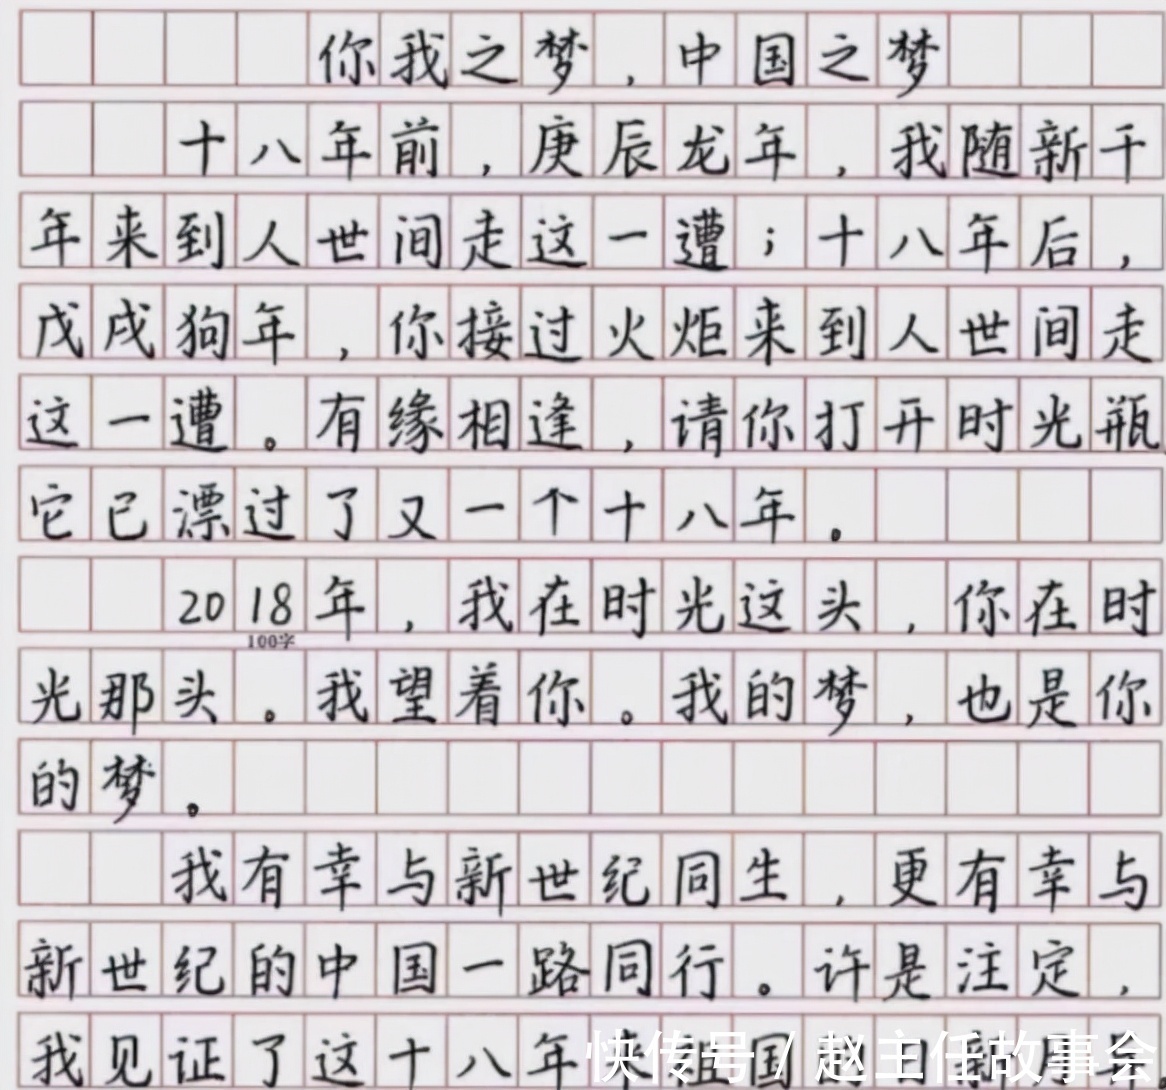 你我之梦，中国之梦
十八年前，庚辰龙年，我随新千
年来到人世间走这一遭；十八年后，
戊戌狗年，你接过火炬来到人世间走
这一遭。有缘相逢，请你打开时光瓶
它已漂过了又一个十八年。
2018年，我在时光这头，你在时
100字
光那头。我望着你。我的梦，也是你
的梦。
我有幸与新世纪同生，更有幸与
新世纪的中国一路同行。许是注定，
我见证了这十八年来祖国
快传号 / 赵主任故事会